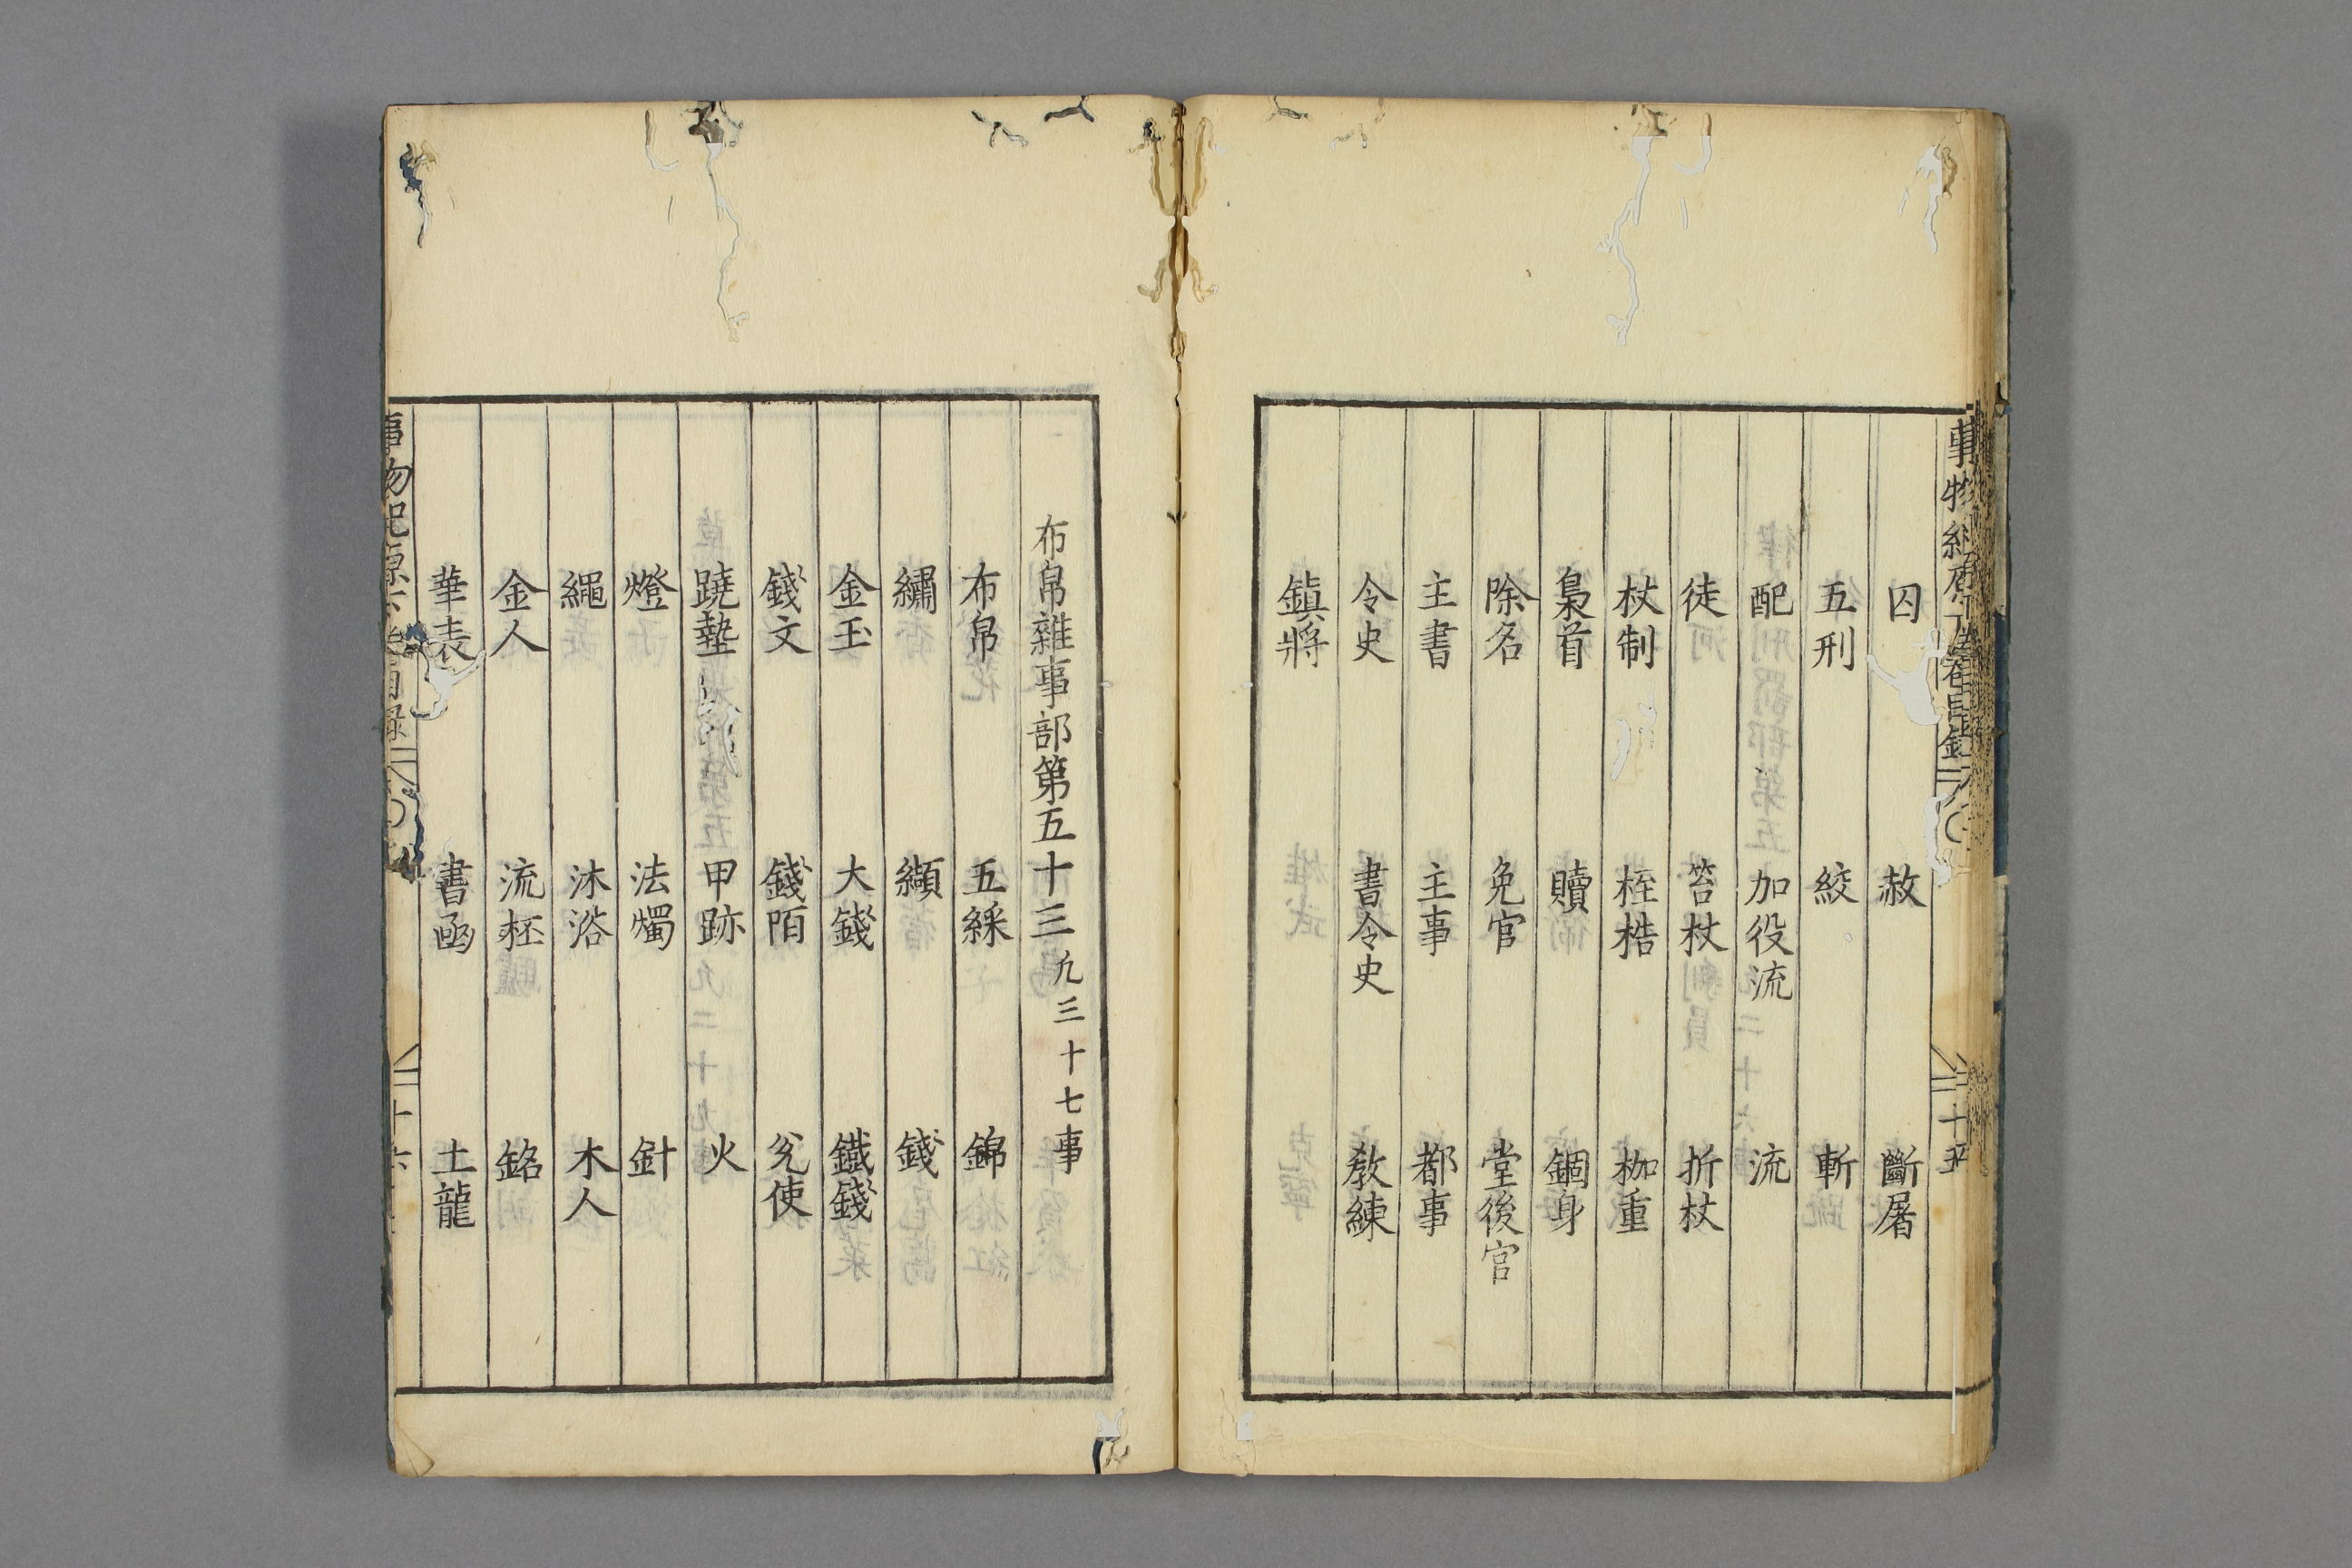 囚　赦　斷屠
五刑　絞　斬
配　加役流　流
徒　笞杖　折杖
杖制　桎梏　枷重
梟首　贖　錮身
除名　免官　堂後官
主書　主事　都事
令史　書令史　教練
鎮將
布帛雜事部第五十三凡三十七事
布帛　五綵　錦
繡　纈　錢
金玉　大錢　鐵錢
錢文　錢陌　兊使
蹺墊　甲跡　火
燈　法燭　針
繩　沐浴　木人
金人　流柸　銘
華表　書函　土龍